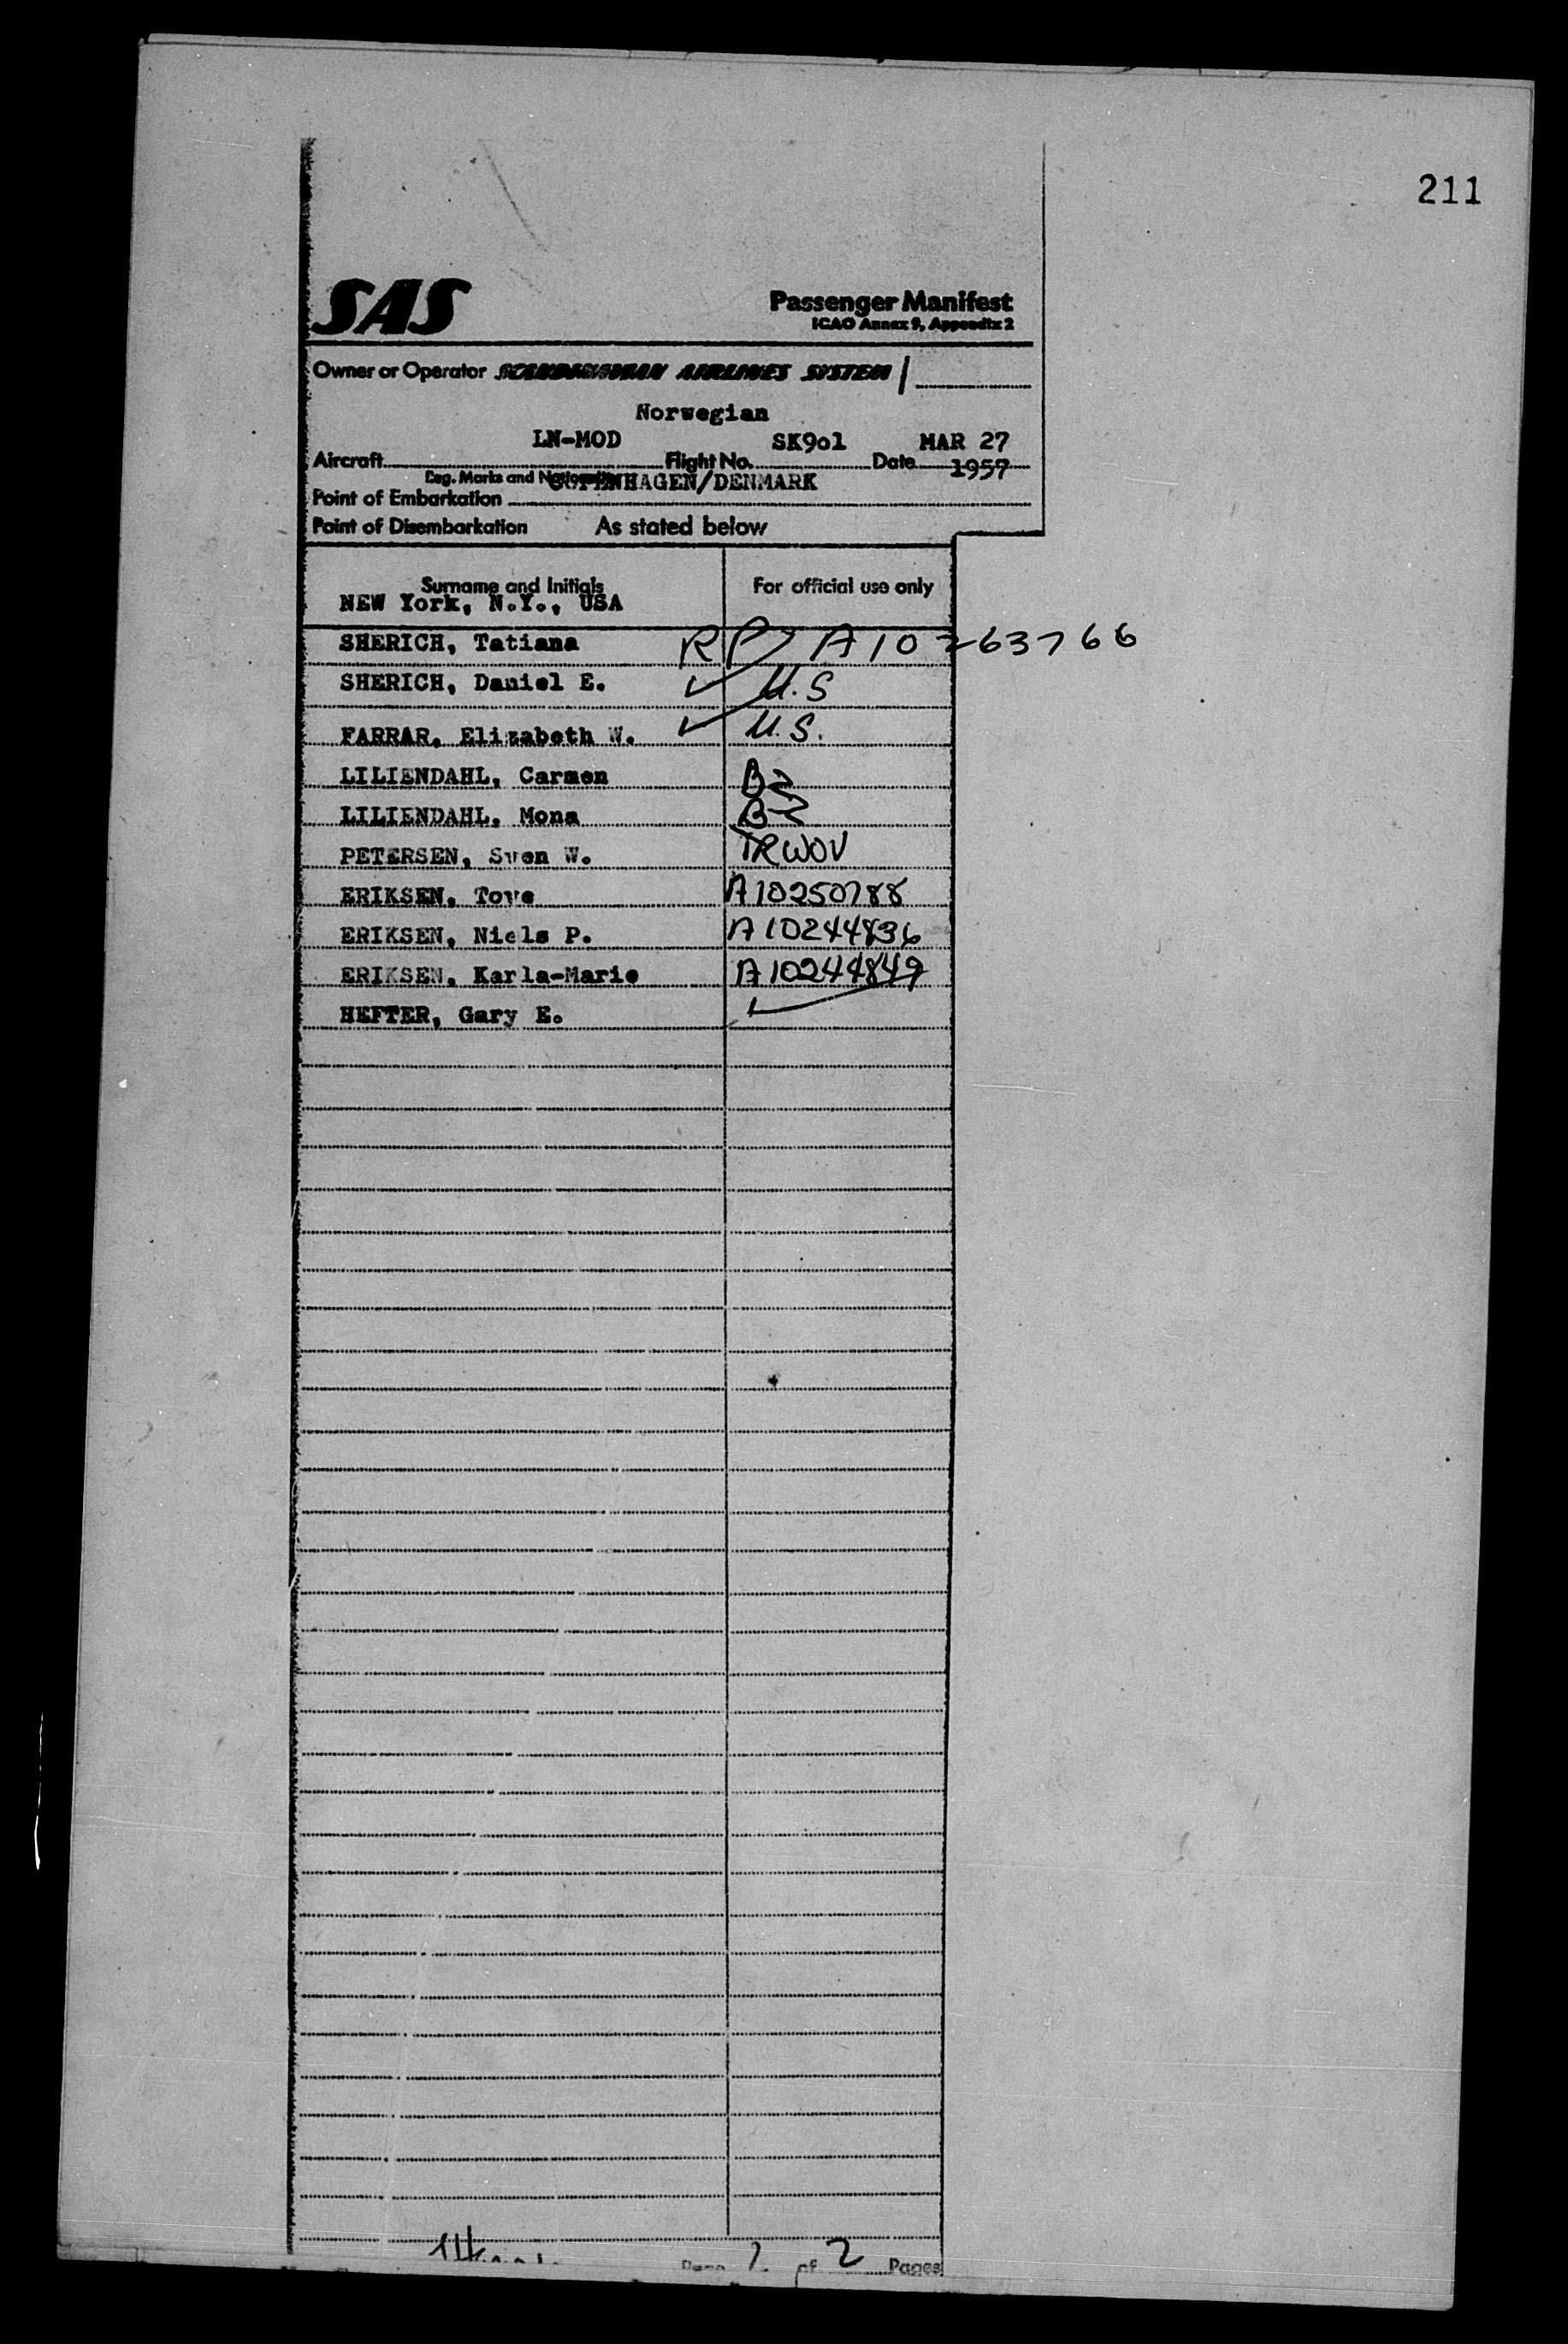 211
SAS
Passenger Manifest
ICAO Annex 9, Appendix 2
Owner or Operator SCANDINAVIAN AIRLINES SYSTEM
Norwegian
LN-MOD SK9o1 MAR 27
Aircraft Flight No. Date 1957
Reg. Marks and Nationality COPENHAGEN/DENMARK
Point of Embarkation
Point of Disembarkation As stated below
Surname and Initials For official use only
NEW York, N.Y., USA
SHERICH, Tatiana RP A10263766
SHERICH, Daniel E. ✓ U.S
FARRAR, Elizabeth W. ✓ U.S.
LILIENDAHL, Carmen B2
LILIENDAHL, Mona B2
PETERSEN, Sven W. TRWOV
ERIKSEN, Tove A10250788
ERIKSEN, Niels P. A10244836
ERIKSEN, Karla-Marie A10244849
HEFTER, Gary E. ✓
Page of 2 Pages